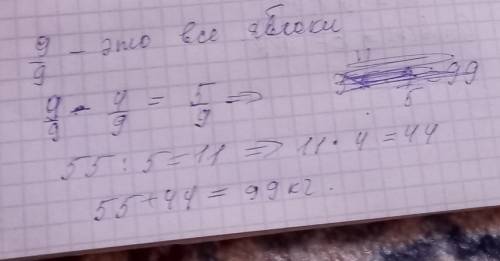 9/9 - это все яблоки
9/9 - 4/9 = 5/9 =>
55 : 5 = 11 => 11 · 4 = 44
55 + 44 = 99 кг.